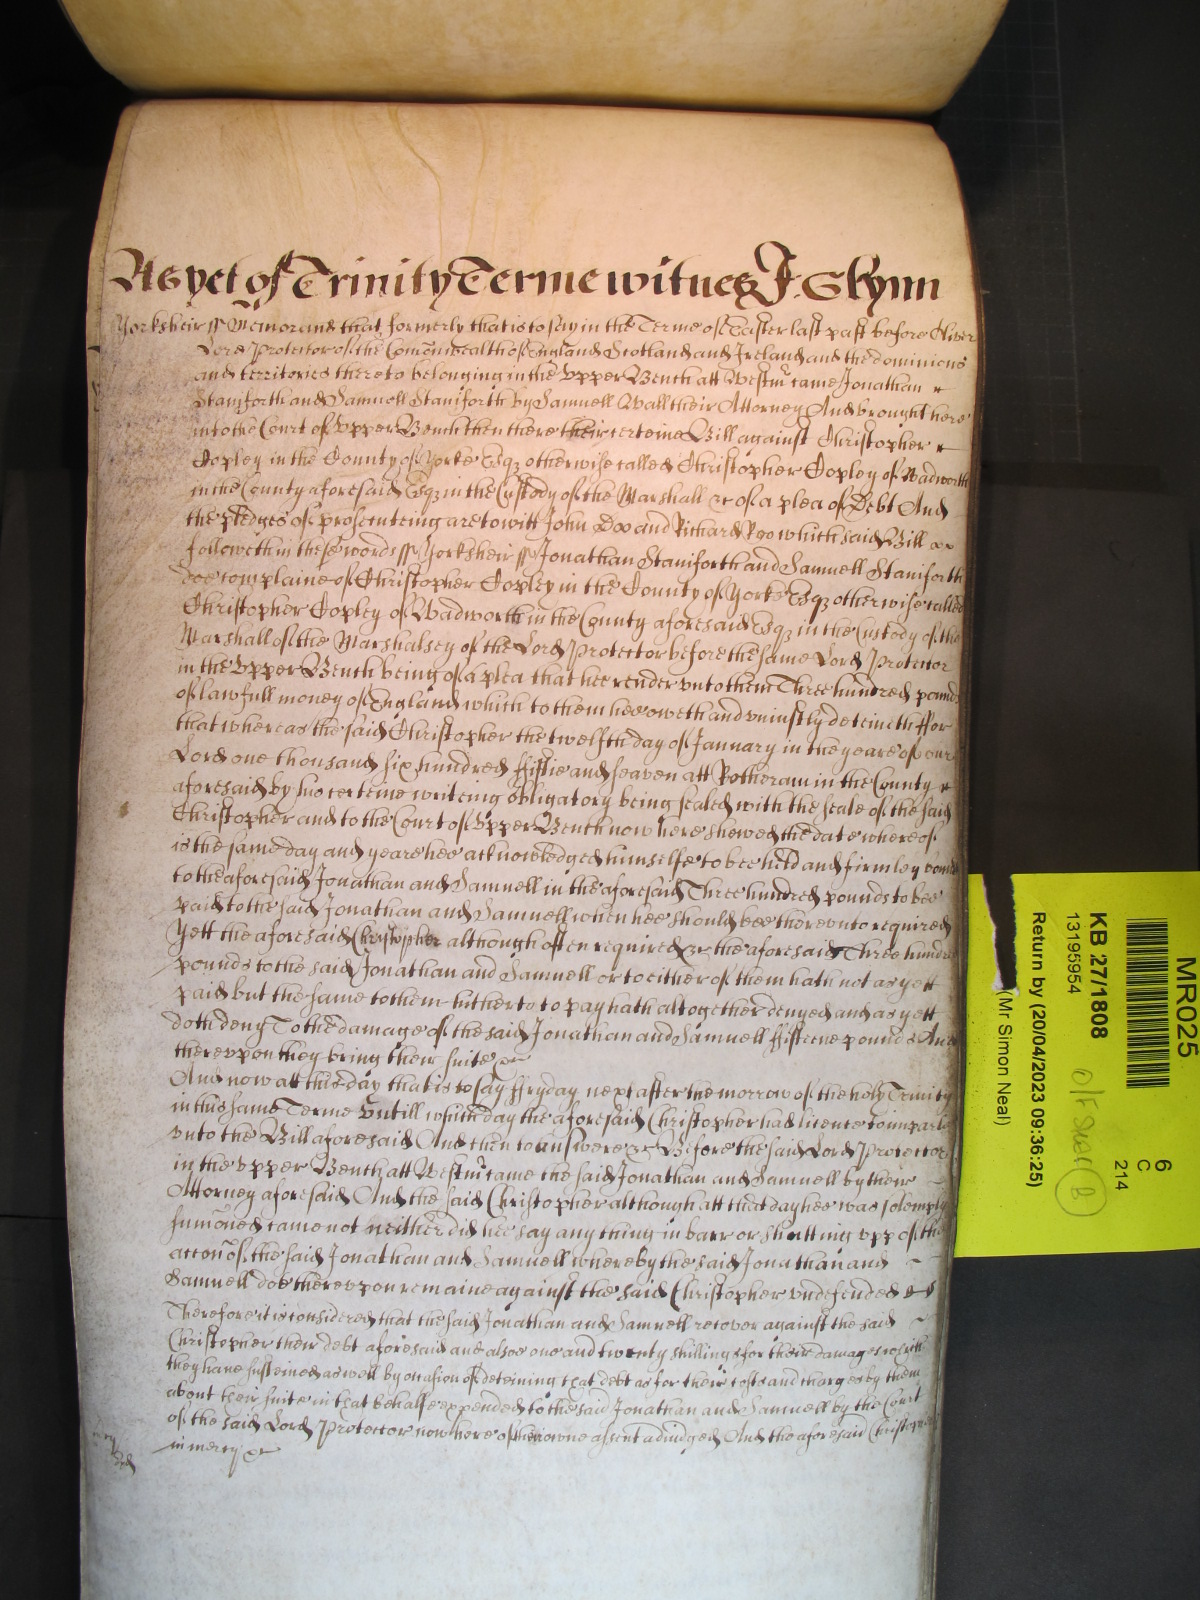 As yet of Trinity Terme witnes J. Glynn
Yorksheir ss Memorand that formerly that is to say in the Terme of Easter last past before Oliver
Lord Protector of the Comonwealth of England Scotland and Ireland and the dominions
and territories thereto belonging in the Upper Bench att Westmr came Jonathan
Staniforth and Samuell Staniforth by Samuell Wall their Attorney And brought here
into the Court of Upper Bench then there their certeine Bill against Christopher
Copley in the County of Yorke Esqz otherwise called Christopher Copley of Wadworth
in the County aforesaid Esqz in the Custody of the Marshall &c of a plea of Debt And
the pledges of prosecuteing are to witt John Doo and Richard Roo which said Bill
followeth in these words ss Yorksheir ss Jonathan Staniforth and Samuell Staniforth
doe complaine of Christopher Copley in the County of Yorke Esqz otherwise called
Christopher Copley of Wadworth in the County aforesaid Esqz in the Custody of the
Marshall of the Marshalsey of the Lord Protector before the same Lord Protector
in the Upper Bench being of a plea that hee render unto them Three hundred pounds
of lawfull money of England which to them hee oweth and uniustly deteineth ffor
that whereas the said Christopher the twelfth day of January in the yeare of our
Lord one thousand six hundred ffiftie and seaven att Rotheram in the County
aforesaid by his certeine writeing obligatory being sealed with the seale of the said
Christopher and to the Court of Upper Bench now here shewed the date whereof
is the same day and yeare hee acknowledged himselfe to bee held and firmley bound
to the aforesaid Jonathan and Samuell in the aforesaid Three hundred pounds to bee
paid to the said Jonathan and Samuell when hee should bee thereunto required
Yett the aforesaid Christopher although often required &c the aforesaid Three hundred
pounds to the said Jonathan and Samuell or to either of them hath not as yett
paid but the same to them hitherto to pay hath altogether denyed and as yett
doth deny To the damage of the said Jonathan and Samuell ffifteene pounds And
thereupon they bring their suite &c
And now att this day that is to say ffryday next after the morrow of the holy Trinity
in this same Terme Untill which day the aforesaid Christopher had licence to imparle
unto the Bill aforesaid And then to answere &c Before the said Lord Protector
in the Upper Bench att Westmr came the said Jonathan and Samuell by their
Attorney aforesaid And the said Christopher although att that day hee was solemply
sumoned came not neither did hee say any thing in barr or shutting upp of the
accon of the said Jonathan and Samuell whereby the said Jonathan and
Samuell doe thereupon remaine against the said Christopher undefended
Therefore it is considered that the said Jonathan and Samuell recover against the said
Christopher their debt aforesaid and alsoe one and twenty shillings for their damages which
they have susteined as well by occasion of deteining that debt as for their costs and charges by them
about their suite in that behalfe expended to the said Jonathan and Samuell by the Court
of the said Lord Protector now here of their owne assent adiudged And the aforesaid Christopher
in mercy &c
MR025
6
C
214
KB 27/1808
13195954
Return by (20/04/2023 09:36:25)
(Mr Simon Neal)